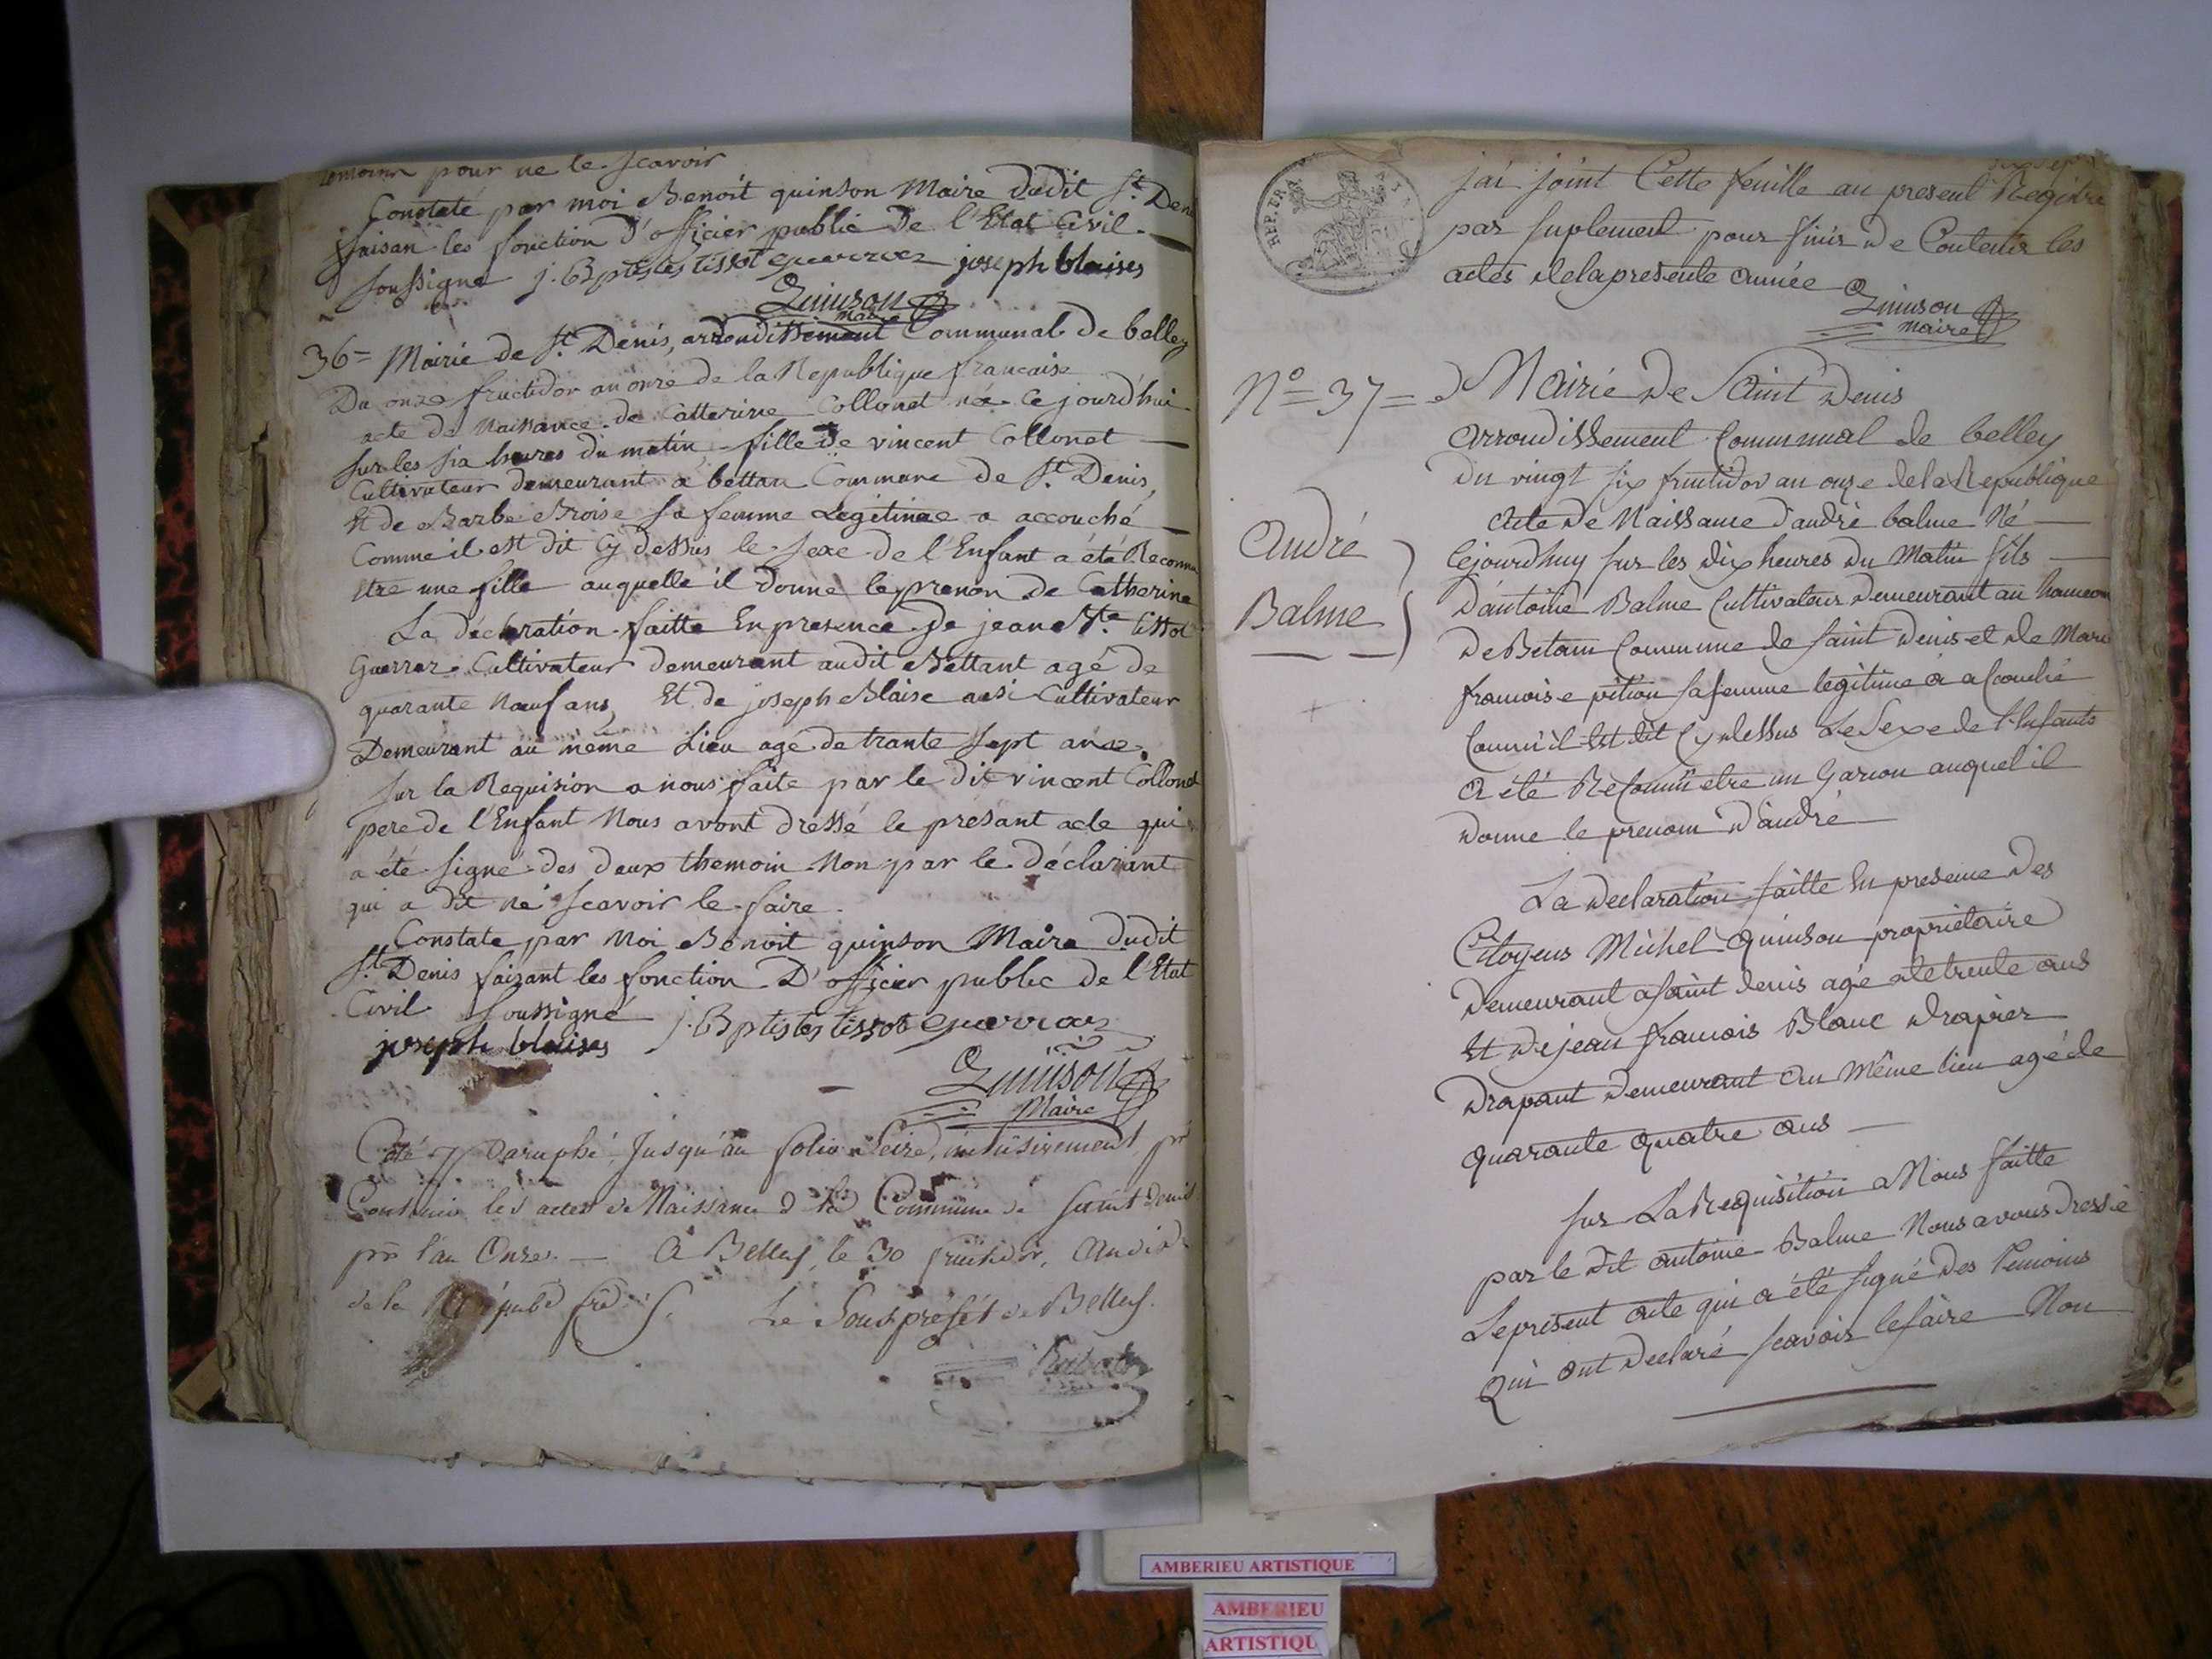 temoins pour ne le scavoir
Constaté par moi Benoit quinson Maire dudit St. Deni
faisan les fonction d'officier public de l'Etat Civil
soussigné j. Bptistes tissot guerrer joseph blaises
Quinson
maire
36= Mairie de St. Denis, arrondissement Communal de belley
Du onze fructidor an onze de la Republique francaise
acte de Naissance de Catterine Collonet né ce jourd'hui
sur les six heures du matin, fille de vincent Collonet
Cultivateur demeurant a bettan Commune de St. Denis,
Et de Barbe Broise sa femme Legitimee a accouché
Comme il est dit Cy dessus le sexe de l'Enfant a été Reconnu
Etre une fille auquelle il donne le prenon de Catherine
La déclaration faitte En presence de jean Bte. tissot
Guerrer Cultivateur demeurant audit Bettant agé de
quarante Neuf ans, Et de joseph Blaise ausi Cultivateur
Demeurant au même Lieu agé de trante sept ans.
sur la Requision a nous faite par le dit vincent Collonet
pere de l'Enfant Nous avont dressé le présant acte qui
a été signé des deux themoin Non par le déclarant
qui a dit ne scavoir le faire.
Constate par Moi Benoit quinson Maire dudit
St. Denis faizant les fonction D'officier public de l'Etat
Civil soussigné j. Bptistes tissot guerrer
joseph blaises
Quinson
Maire
Coté & Paraphé, Jusqu'au folio Seize, inclusivement, pr
Contenir les actes de Naissance de la Commune de Saint Denis
pr l'an Onze. — A Belley, le 30 fructidor, An dix
de la Répub. frse.
Le Souspréfet de Belley.
REP. FRA.
j'ai joint Cette feuille au present Regitre
par suplement pour finir de Contenir les
actes de la presente année
Quinson
maire
No = 37 = Mairie de Saint Denis
arrondissement Communal de belley
Du vingt six fructidor an onze de la Republique
André
Balme
acte de Naissance d'andré balme Né
Cejourdhuy sur les dix heures du Matin fils
D'antoine Balme Cultivateur demeurant au hameau
de Betam Commune de saint Denis et de Marie
francoise pition sa femme legitime a acouché
Comm'il Est dit Cy dessus Le Sexe de l'Enfants
a été Reconnü etre un Garcon auquel il
donne le prenom d'andré
La declaration faitte En presence des
Citoyens Michel Quinson propriétaire
demeurant a saint denis agé de trente ans
Et de jean francois Blanc drapier
drapant demeurant au Même lieu agé de
quarante quatre ans
sur La Requisition a Nous faitte
par le dit antoine Balme Nous avons dressé
Le present acte qui a été signé des temoins
Qui ont declaré scavoir le faire Non
AMBERIEU ARTISTIQUE
AMBERIEU
ARTISTIQU